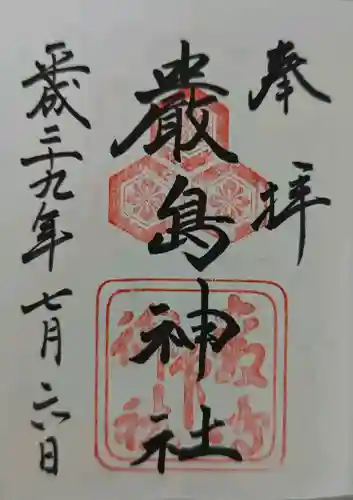 奉拝
嚴島神社
平成二十九年七月二六日